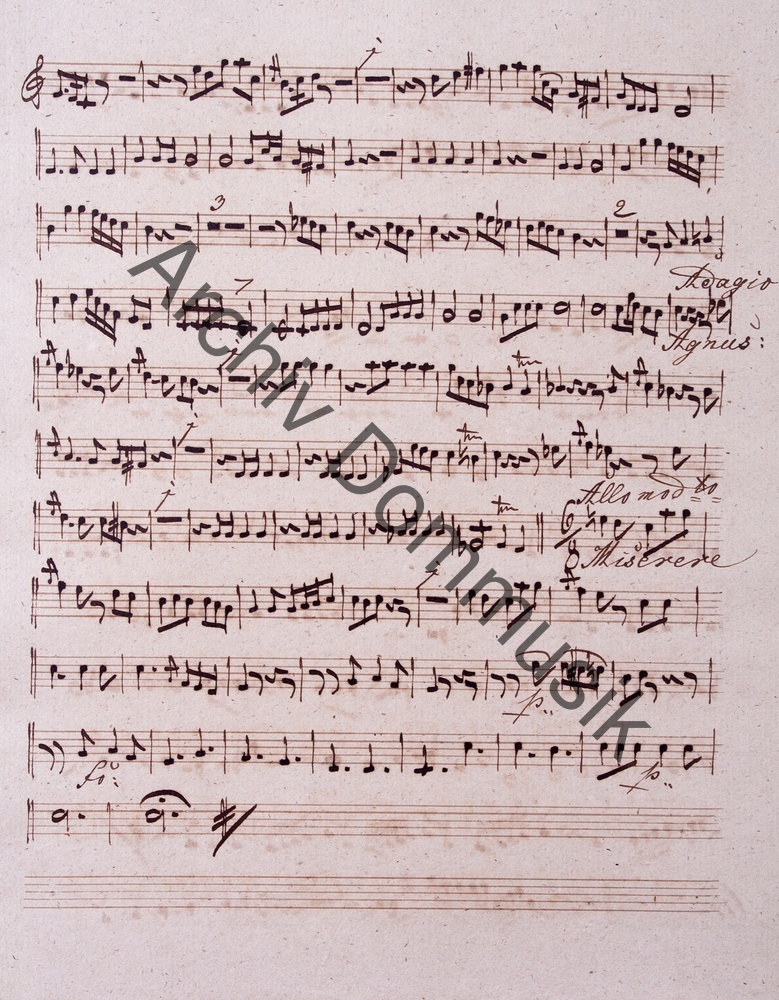 1
3
2
Adagio
7
Agnus:
tm
1
tm
1
All⁰ mod.to
tm
1
6
8
Miserere
1
p.
fo:
p.
Archiv Dommusik